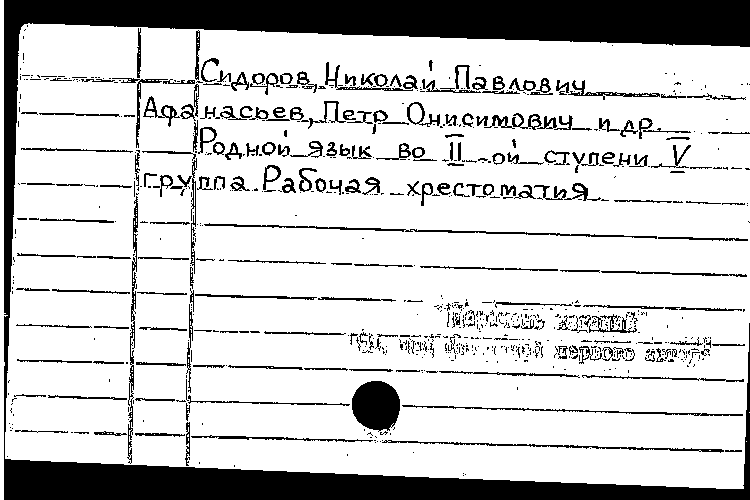 Сидоров, Николай Павлович
Афанасьев, Петр Онисимович и др.
Родной язык во II-ой ступени. V
группа Рабочая хрестоматия
первого